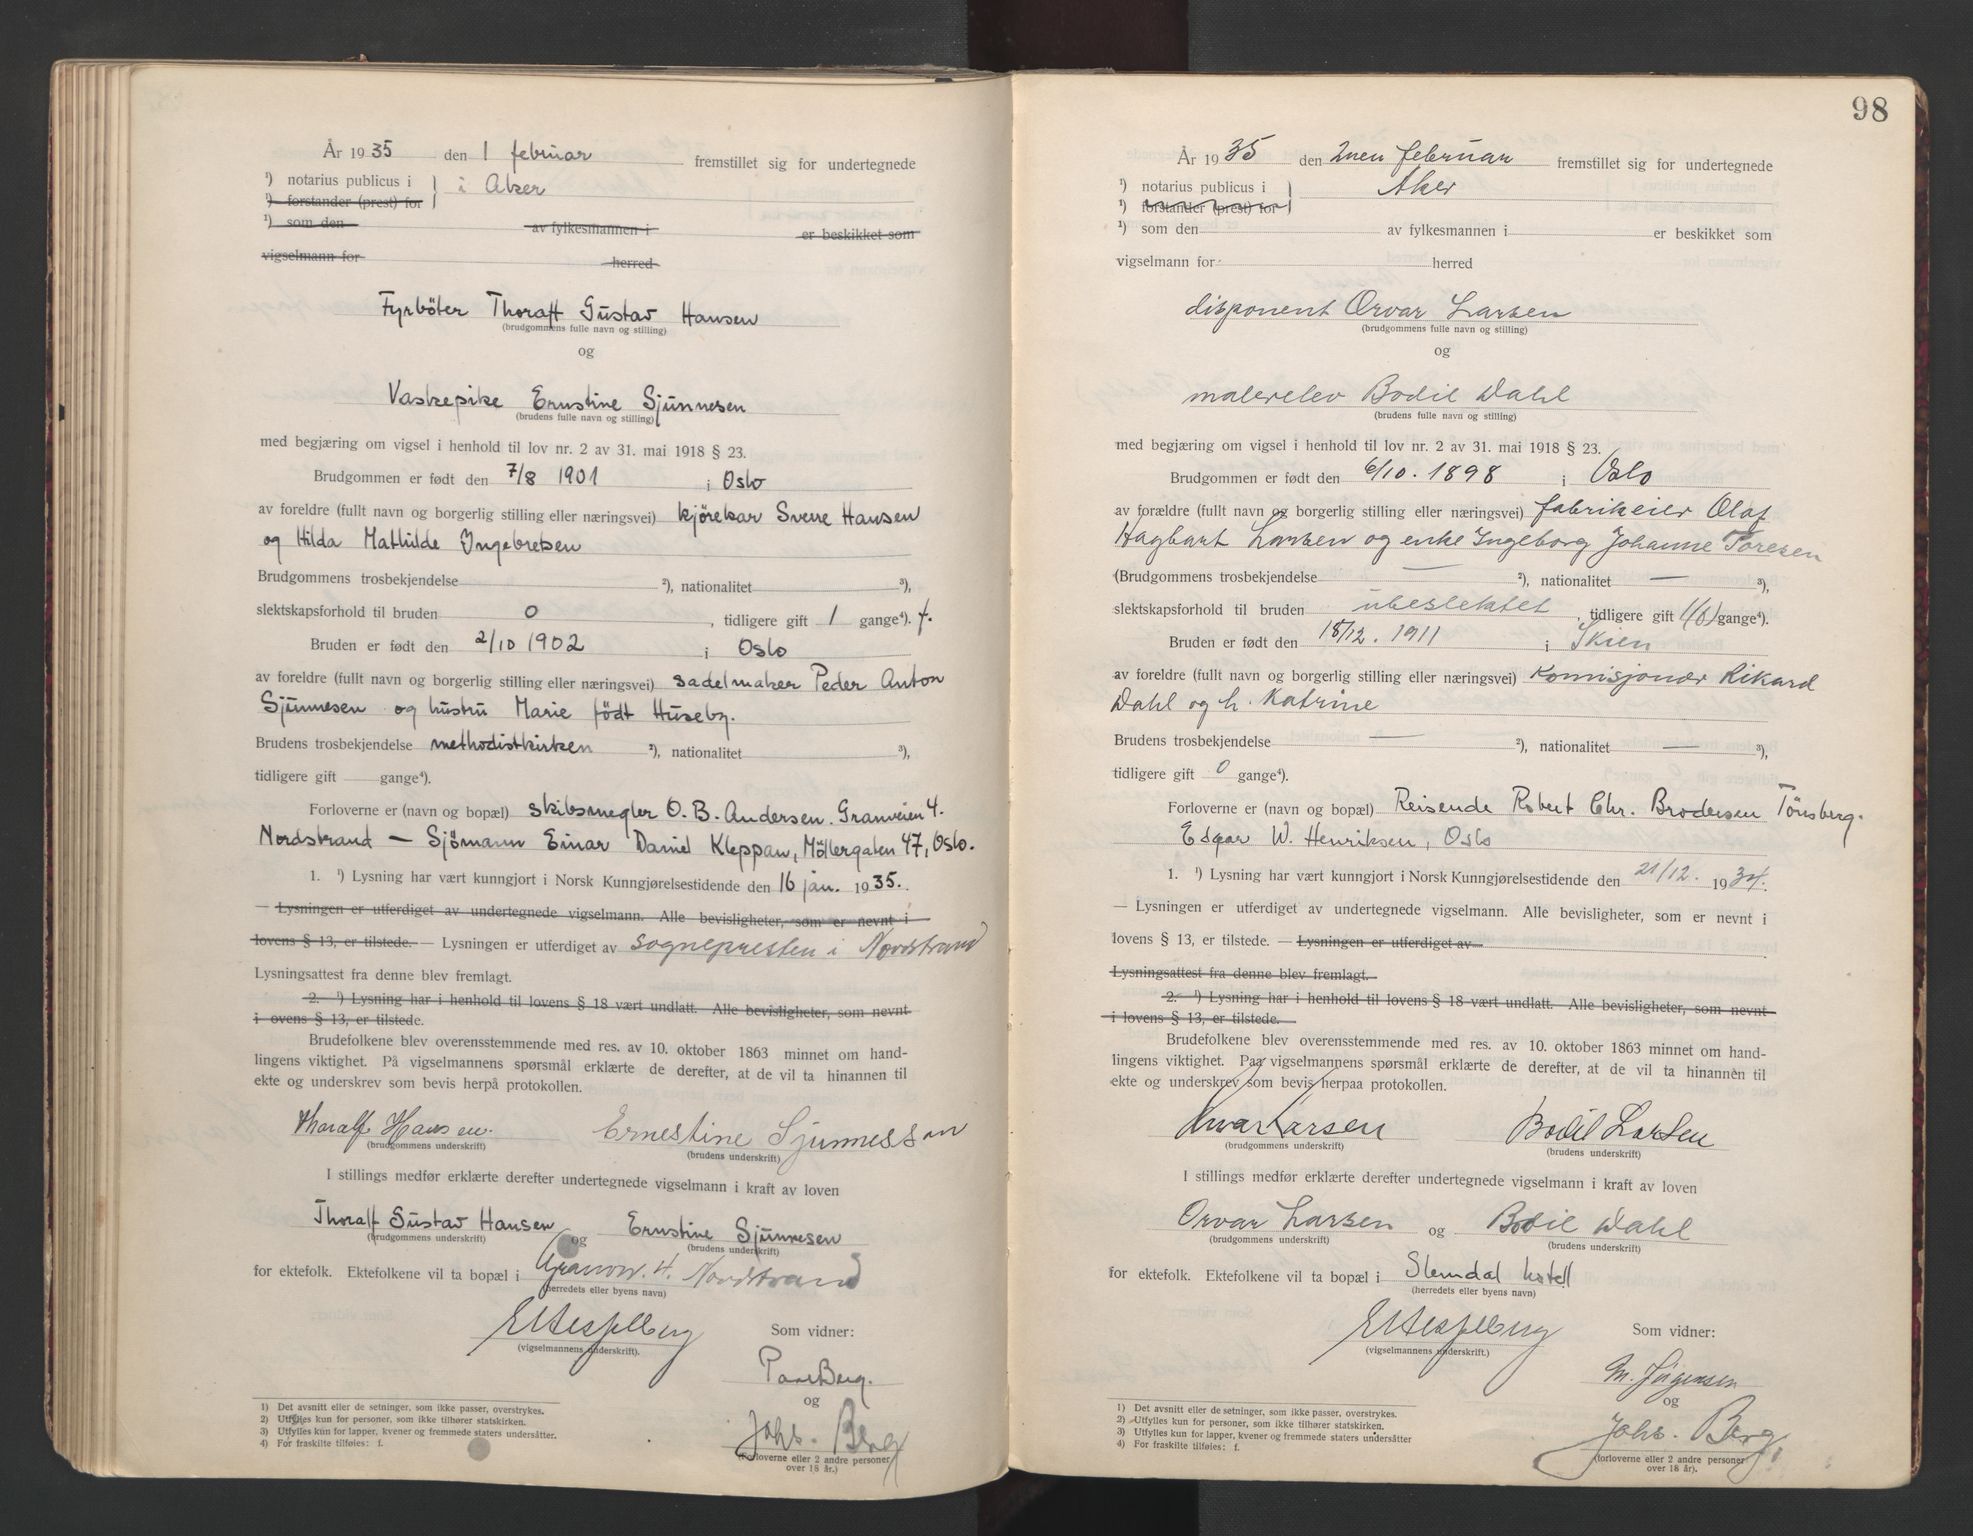 År 1935 den 1 februar fremstillet sig for undertegnede
¹) notarius publicus i } i Aker
¹) forstander (prest) for
¹) som den av fylkesmannen i er beskikket som
vigselmann for herred
Fyrböter Thoralf Gustav Hansen
(brudgommens fulle navn og stilling)
og
Vaskepike Ernstine Sjünnesen
(brudens fulle navn og stilling)
med begjæring om vigsel i henhold til lov nr. 2 av 31. mai 1918 § 23.
Brudgommen er født den 7/8 1901 i Oslo
av foreldre (fullt navn og borgerlig stilling eller næringsvei) kjörekar Sverre Hansen
og Hilda Mathilde Ingebretsen
Brudgommens trosbekjendelse ²), nationalitet ³),
slektskapsforhold til bruden 0, tidligere gift 1 gange⁴). f.
Bruden er født den 2/10 1902 i Oslo
av foreldre (fullt navn og borgerlig stilling eller næringsvei) sadelmaker Peder Anton
Sjünnesen og hustru Marie født Huseby.
Brudens trosbekjendelse methodistkirken ²), nationalitet ³),
tidligere gift gange⁴).
Forloverne er (navn og bopæl) skibsmegler O. B. Andersen. Granveien 4.
Nordstrand — Sjömann Einar Daniel Kleppan, Möllergaten 47, Oslo.
1. ¹) Lysning har vært kunngjort i Norsk Kunngjørelsestidende den 16 jan. 1935.
— Lysningen er utferdiget av undertegnede vigselmann. Alle bevisligheter, som er nevnt i
lovens § 13, er tilstede. — Lysningen er utferdiget av sognepresten i Nordstrand
Lysningsattest fra denne blev fremlagt.
2. ¹) Lysning har i henhold til lovens § 18 vært undlatt. Alle bevisligheter, som nevnt
i ovens § 13, er tilstede.
Brudefolkene blev overensstemmende med res. av 10. oktober 1863 minnet om hand-
lingens viktighet. På vigselmannens spørsmål erklærte de derefter, at de vil ta hinannen til
ekte og underskrev som bevis herpå protokollen.
Thoralf Hansen. Ernestine Sjunnesson
(brudgommens underskrift) (brudens underskrift)
I stillings medfør erklærte derefter undertegnede vigselmann i kraft av loven
Thoralf Gustav Hansen og Ernstine Sjünnesen
(brudgommens underskrift) (brudens underskrift)
for ektefolk. Ektefolkene vil ta bopæl i Granvn. 4. Nordstrand
(herredets eller byens navn)
Som vidner:
(vigselmannens underskrift).
Berg.
og
Johs. Berg
(forloverne eller 2 andre personer
over 18 år.)
1) Det avsnitt eller de setninger, som ikke passer, overstrykes.
2) Utfylles kun for personer, som ikke tilhører statskirken.
3) Utfylles kun for lapper, kvener og fremmede staters undersåtter.
4) For fraskilte tilføies: f.
98
År 1935 den 2nen februar fremstillet sig for undertegnede
¹) notarius publicus i } Aker
¹) forstander (prest) for
¹) som den av fylkesmannen i er beskikket som
vigselmann for herred
disponent Orvar Larsen
(brudgommens fulle navn og stilling)
og
malerelev Bodil Dahl
(brudens fulle navn og stilling)
med begjæring om vigsel i henhold til lov nr. 2 av 31. mai 1918 § 23.
Brudgommen er født den 6/10. 1898 i Oslo
av forældre (fullt navn og borgerlig stilling eller næringsvei) fabrikeier Olaf
Hagbart Larsen og enke Ingeborg Johanne Toresen
(Brudgommens trosbekjendelse — ²), nationalitet — ³),
slektskapsforhold til bruden ubeslektet, tidligere gift 1(0) gange⁴).
Bruden er født den 18/12. 1911 i Skien
av foreldre (fullt navn og borgerlig stilling eller næringsvei) Komisjonær Rikard
Dahl og h. Katrine
Brudens trosbekjendelse — ²), nationalitet — ³),
tidligere gift 0 gange⁴).
Forloverne er (navn og bopæl) Reisende Robert Chr. Brodersen Tönsberg.
Edgar W. Henriksen, Oslo
1. ¹) Lysning har vært kunngjort i Norsk Kunngjørelsestidende den 21/12. 1934.
— Lysningen er utferdiget av undertegnede vigselmann. Alle bevisligheter, som er nevnt i
lovens § 13, er tilstede. — Lysningen er utferdiget av
Lysningsattest fra denne blev fremlagt.
2. ¹) Lysning har i henhold til lovens § 18 vært undlatt. Alle bevisligheter, som nevnt
i lovens § 13, er tilstede.
Brudefolkene blev overensstemmende med res. av 10. oktober 1863 minnet om hand-
lingens viktighet. Paa vigselmannens spørsmål erklærte de derefter, at de vil ta hinannèn til
ekte og underskrev som bevis herpaa protokollen.
Orvar Larsen Bodil Larsen
(brudgommens underskrift) (brudens underskrift)
I stillings medfør erklærte derefter undertegnede vigselmann i kraft av loven
Orvar Larsen og Bodil Dahl
(brudgommens underskrift) (brudens underskrift)
for ektefolk. Ektefolkene vil ta bopæl i Slemdal hotell
(herredets eller byens navn)
Som vidner:
(vigselmannens underskrift.)
M. Jörgensen
og
Johs. Berg
(forloverne eller 2 andre personer
over 18 år).
1) Det avsnitt eller de setninger, som ikke passer, overstrykes.
2) Utfylles kun for personer, som ikke tilhører statskirken.
3) Utfylles kun for lapper, kvener og fremmede staters undersåtter
4) For fraskilte tilføies: f.